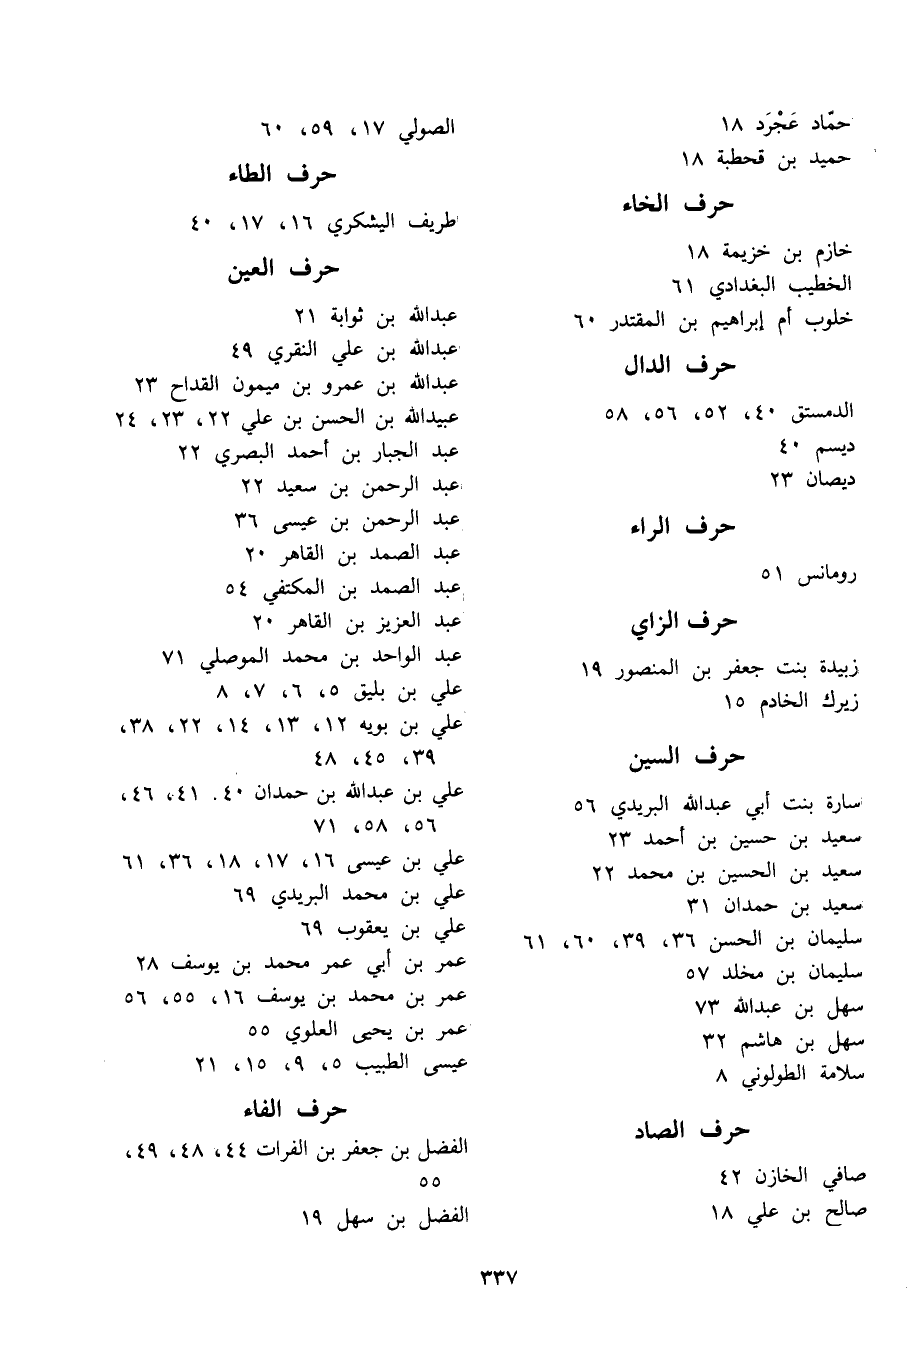 حمّاد عَجْرَد ١٨
حميد بن قحطبة ١٨
حرف الخاء
خازم بن خزيمة ١٨
الخطيب البغدادي ٦١
خلوب أم إبراهيم بن المقتدر ٦٠
حرف الدال
الدمستق ٤٠، ٥٢، ٥٦، ٥٨
ديسم ٤٠
ديصان ٢٣
حرف الراء
رومانس ٥١
حرف الزاي
زبيدة بنت جعفر بن المنصور ١٩
زيرك الخادم ١٥
حرف السين
سارة بنت أبي عبدالله البريدي ٥٦
سعيد بن حسين بن أحمد ٢٣
سعيد بن الحسين بن محمد ٢٢
سعيد بن حمدان ٣١
سليمان بن الحسن ٣٦، ٣٩، ٦٠، ٦١
سليمان بن مخلد ٥٧
سهل بن عبدالله ٧٣
سهل بن هاشم ٣٢
سلامة الطولوني ٨
حرف الصاد
صافي الخازن ٤٢
صالح بن علي ١٨
الصولي ١٧، ٥٩، ٦٠
حرف الطاء
طريف اليشكري ١٦، ١٧، ٤٠
حرف العين
عبدالله بن ثوابة ٢١
عبدالله بن علي النقري ٤٩
عبدالله بن عمرو بن ميمون القداح ٢٣
عبيدالله بن الحسن بن علي ٢٢، ٢٣، ٢٤
عبد الجبار بن أحمد البصري ٢٢
عبد الرحمن بن سعيد ٢٢
عبد الرحمن بن عيسى ٣٦
عبد الصمد بن القاهر ٢٠
عبد الصمد بن المكتفي ٥٤
عبد العزيز بن القاهر ٢٠
عبد الواحد بن محمد الموصلي ٧١
علي بن بليق ٥، ٦، ٧، ٨
علي بن بويه ١٢، ١٣، ١٤، ٢٢، ٣٨،
٣٩، ٤٥، ٤٨
علي بن عبدالله بن حمدان ٤٠. ٤١، ٤٦،
٥٦، ٥٨، ٧١
علي بن عيسى ١٦، ١٧، ١٨، ٣٦، ٦١
علي بن محمد البريدي ٦٩
علي بن يعقوب ٦٩
عمر بن أبي عمر محمد بن يوسف ٢٨
عمر بن محمد بن يوسف ١٦، ٥٥، ٥٦
عمر بن يحيى العلوي ٥٥
عيسى الطبيب ٥، ٩، ١٥، ٢١
حرف الفاء
الفضل بن جعفر بن الفرات ٤٤، ٤٨، ٤٩،
٥٥
الفضل بن سهل ١٩
٣٣٧